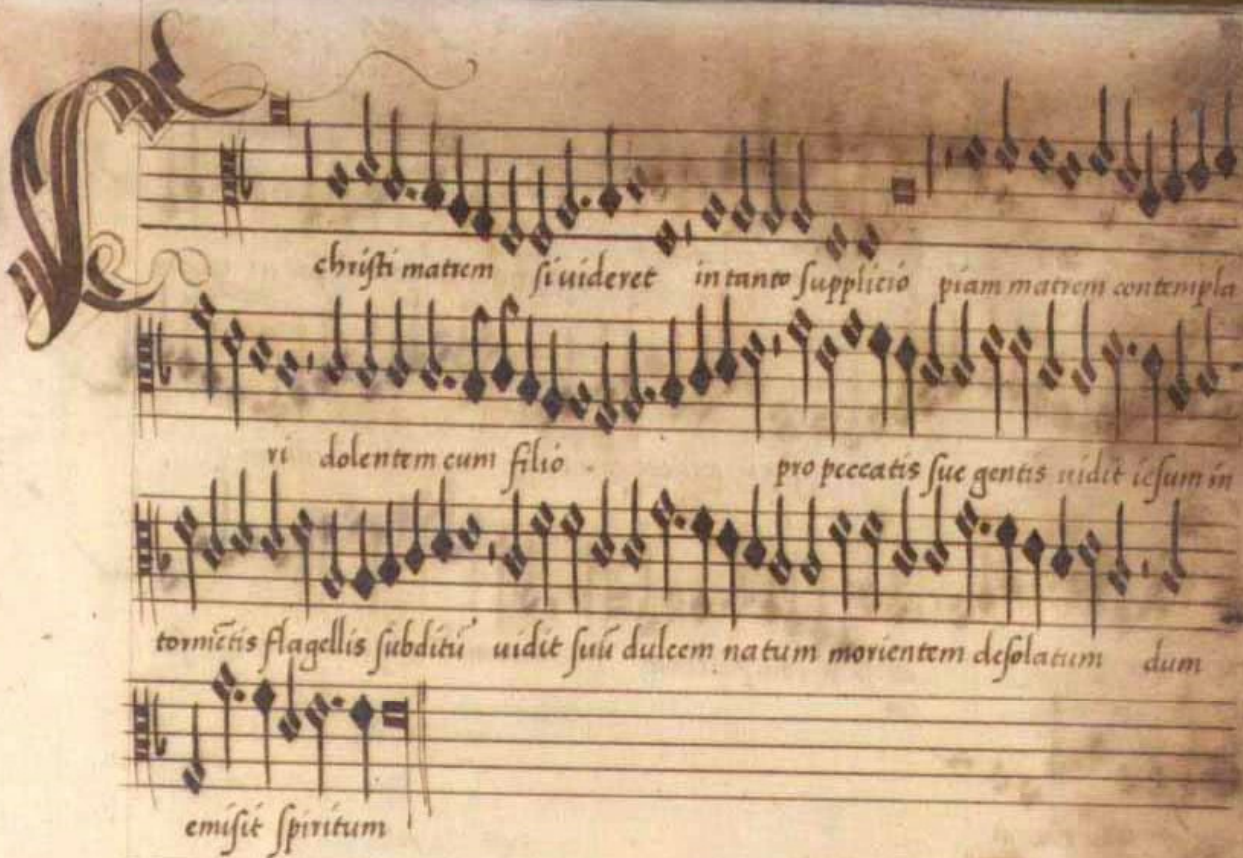 christi matrem si uideret in tanto supplicio piam matrem contempla
ri dolentem cum filio pro peccatis sue gentis uidit iesum in
tormētis flagellis subditū uidit suū dulcem natum morientem desolatum dum
emisit spiritum